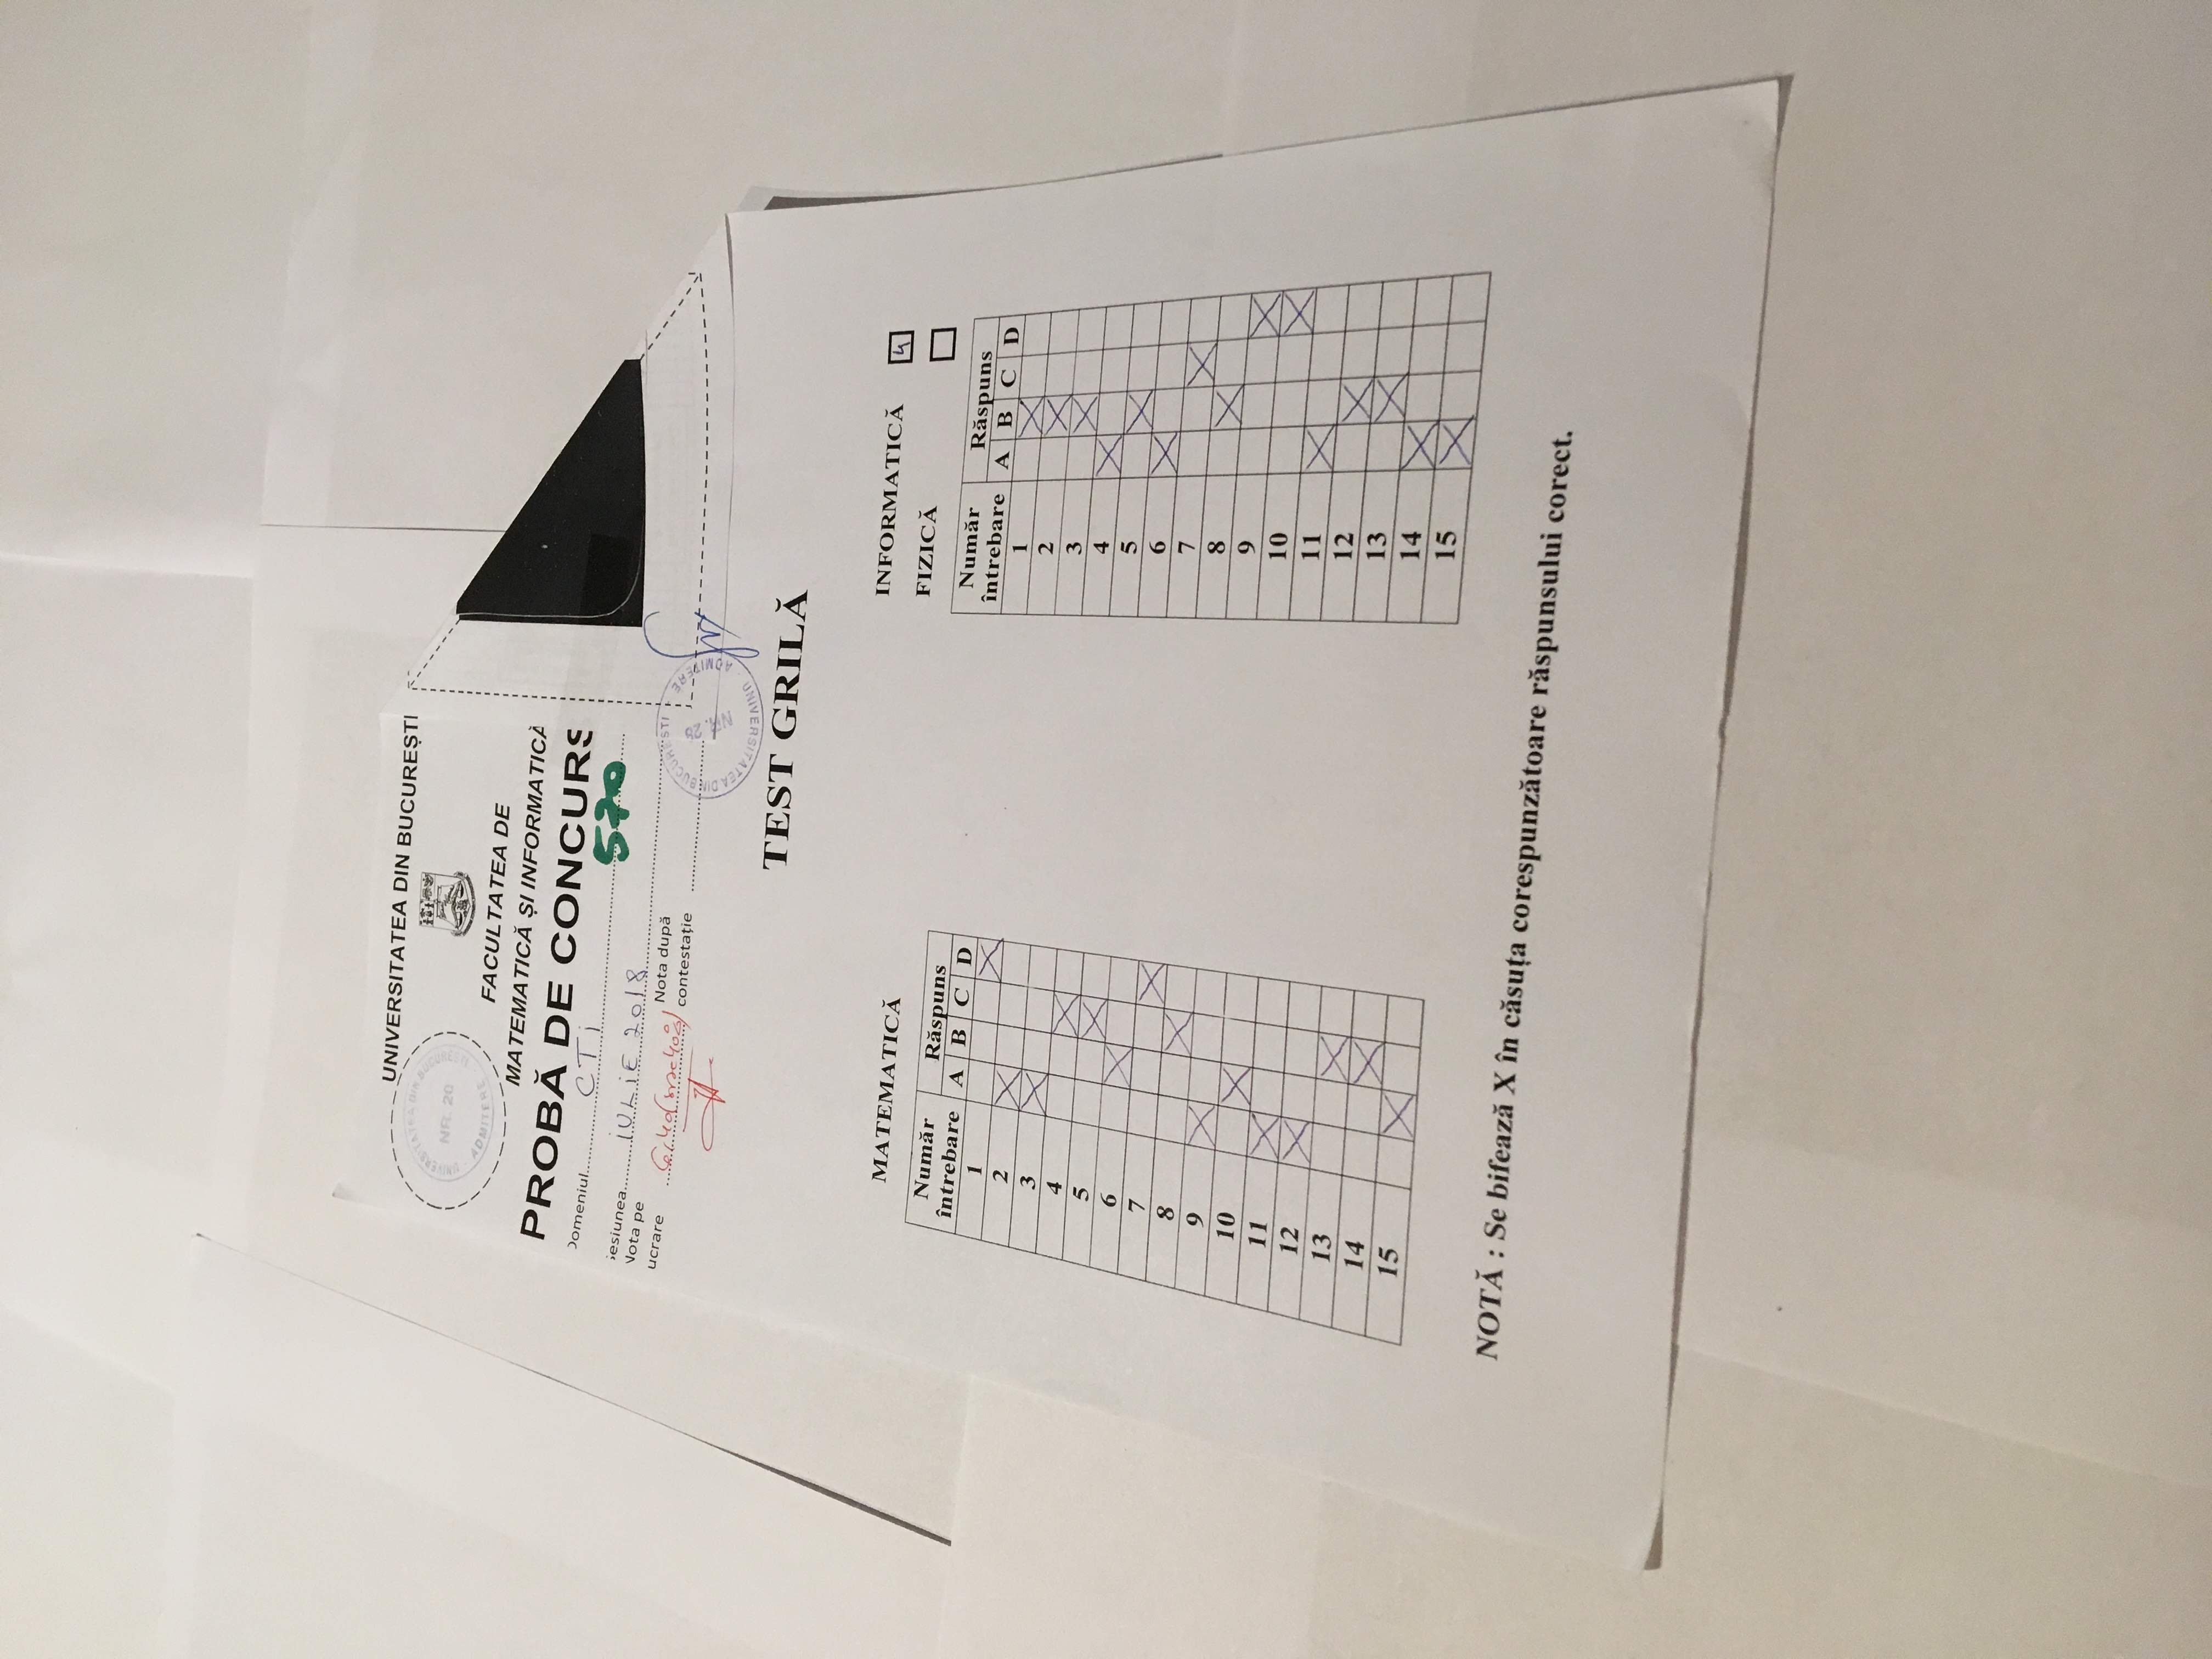 UNIVERSITATEA DIN BUCUREȘTI
UNIVERSITATEA DIN BUCUREȘTI
NR. 20
ADMITERE
FACULTATEA DE
MATEMATICĂ ȘI INFORMATICĂ
PROBĂ DE CONCURS
Domeniul CTi
570
Sesiunea IULIE 2018
Nota pe
lucrare
Nota după
contestație
UNIVERSITATEA DIN BUCURESTI
NR. 26
ADMITERE
TEST GRILĂ
MATEMATICĂ
Număr întrebare Răspuns
A B C D
1 X
2 X
3 X
4 X
5 X
6 X
7 X
8 X
9 X
10 X
11 X
12 X
13 X
14 X
15 X
INFORMATICĂ 4
FIZICĂ
Număr întrebare Răspuns
A B C D
1 X
2 X
3 X
4 X
5 X
6 X
7 X
8 X
9 X
10 X
11 X
12 X
13 X
14 X
15 X
NOTĂ : Se bifează X în căsuța corespunzătoare răspunsului corect.